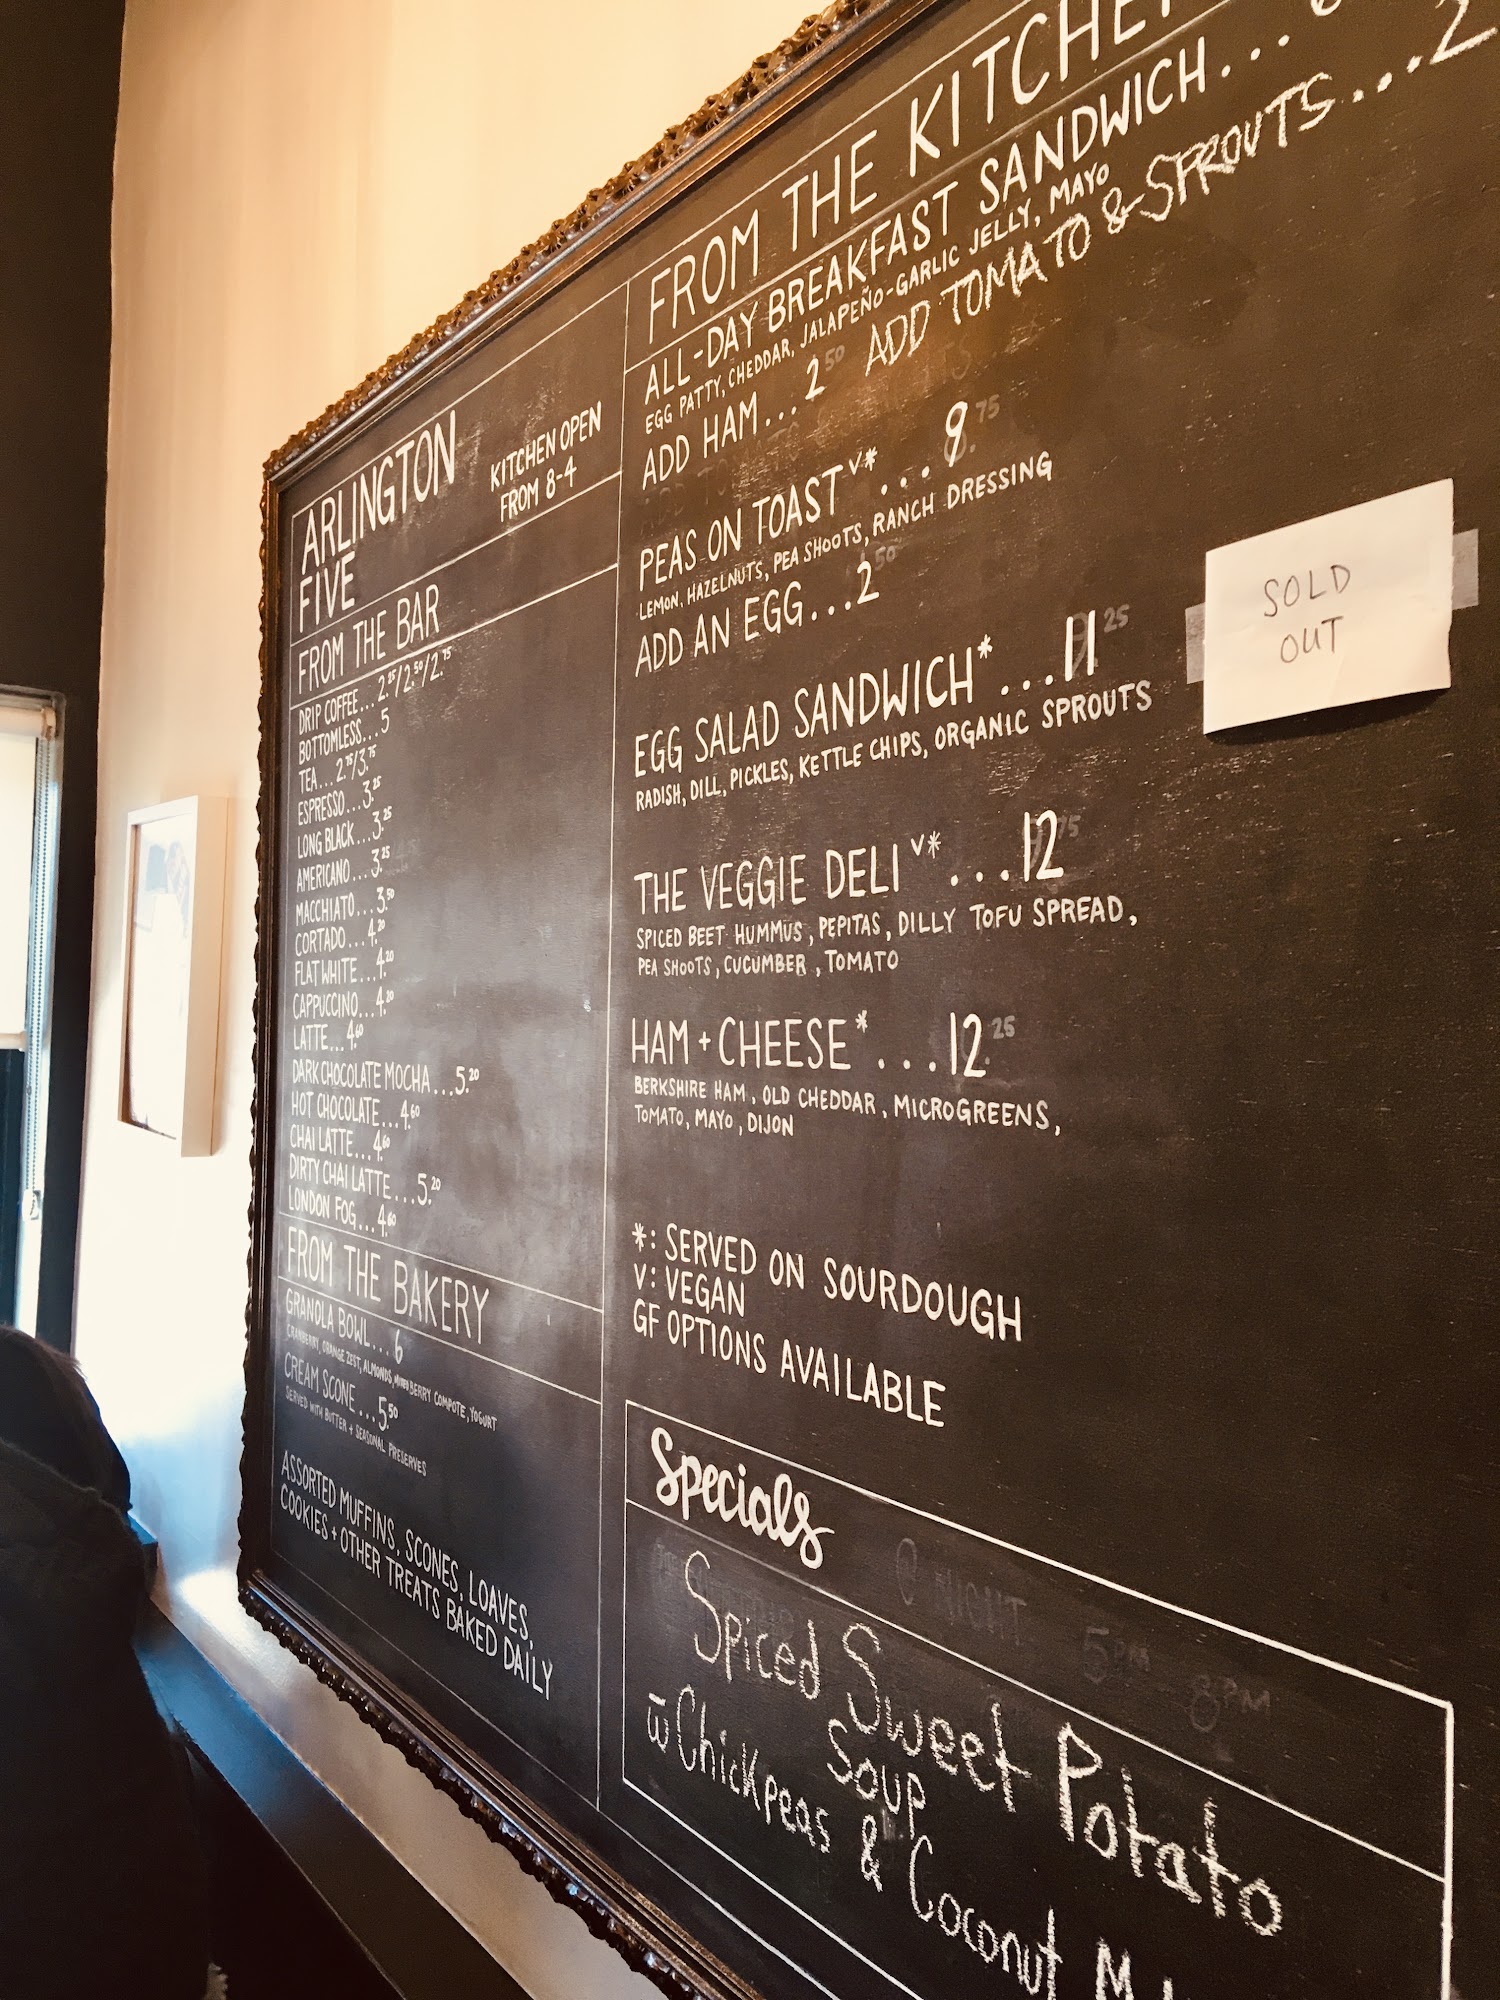 ARLINGTON
FIVE
KITCHEN OPEN
FROM 8-4
FROM THE BAR
DRIP COFFEE... 2.25/2.50/2.75
BOTTOMLESS...5
TEA... 2.75/3.75
ESPRESSO...3.25
LONG BLACK...3.25
AMERICANO...3.25
MACCHIATO...3.50
CORTADO...4.20
FLAT WHITE...4.20
CAPPUCCINO...4.20
LATTE...4.60
DARK CHOCOLATE MOCHA...5.20
HOT CHOCOLATE...4.60
CHAI LATTE...4.60
DIRTY CHAI LATTE...5.20
LONDON FOG...4.60
FROM THE BAKERY
GRANOLA BOWL...6
CRANBERRY, ORANGE ZEST, ALMONDS, MIXED BERRY COMPOTE, YOGURT
CREAM SCONE...5.50
SERVED WITH BUTTER + SEASONAL PRESERVES
ASSORTED MUFFINS, SCONES, LOAVES,
COOKIES + OTHER TREATS BAKED DAILY
FROM THE KITCHEN
ALL-DAY BREAKFAST SANDWICH...
EGG PATTY, CHEDDAR, JALAPEÑO-GARLIC JELLY, MAYO
ADD HAM...2.50 ADD TOMATO & SPROUTS...2
PEAS ON TOAST V* ...9.75
LEMON, HAZELNUTS, PEA SHOOTS, RANCH DRESSING
ADD AN EGG...2.50
EGG SALAD SANDWICH* ...11.25
RADISH, DILL, PICKLES, KETTLE CHIPS, ORGANIC SPROUTS
SOLD
OUT
THE VEGGIE DELI V* ...12.75
SPICED BEET HUMMUS, PEPITAS, DILLY TOFU SPREAD,
PEA SHOOTS, CUCUMBER, TOMATO
HAM + CHEESE* ...12.25
BERKSHIRE HAM, OLD CHEDDAR, MICROGREENS,
TOMATO, MAYO, DIJON
*: SERVED ON SOURDOUGH
V: VEGAN
GF OPTIONS AVAILABLE
Specials
NIGHT 5PM 8PM
Spiced Sweet Potato
Soup
w̄ Chickpeas & Coconut